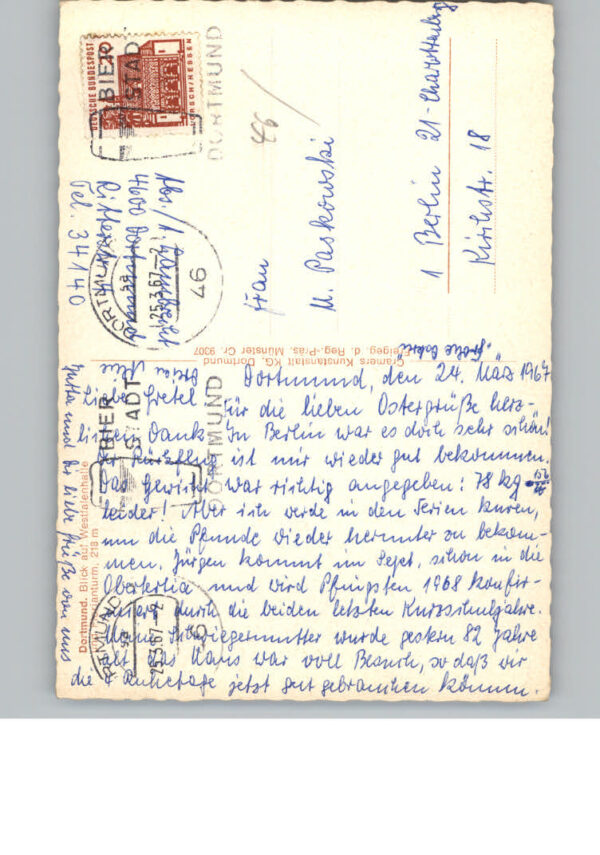 DEUTSCHE BUNDESPOST
20
LORSCH/HESSEN
BIER
STADT
DORTMUND
46
25.3.67-2
46
Frau
M. Paskowski
1 Berlin 21-Charlottenburg
Kirchstr. 18
4600 Dortmund
Tel. 34140
Cramers Kunstanstalt KG, Dortmund
Freigeg. d. Reg.-Präs. Münster Cr. 9307
Dortmund, Blick auf Westfalenhalle
Florianturm, 218 m
BIER
STADT
DORTMUND
46
"Frohe Ostern"
Dortmund, den 24. März 1967
Liebe Gretel
Für die lieben Ostergrüße herz-
lichen Dank. In Berlin war es doch sehr schön!
Der Rückflug ist mir wieder gut bekommen.
Das Gewicht war richtig angegeben: 78 kg
leider! Aber ich werde in den Ferien kuren,
um die Pfunde wieder herunter zu bekom-
men. Jürgen kommt im Sept. schon in die
Obertertia und wird Pfingsten 1968 konfir-
miert durch die beiden letzten Kurzschuljahre.
Meine Schwiegermutter wurde gestern 82 Jahre
alt das Haus war voll Besuch, so daß wir
die Ruhetage jetzt gut gebrauchen können.
und Dir liebe Grüße von uns